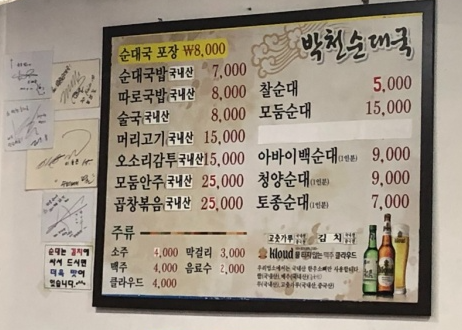 순대국 포장 ₩8,000
순대국밥 국내산 7,000
따로국밥 국내산 8,000
술국 국내산 8,000
머리고기 국내산 15,000
오소리감투 국내산 15,000
모둠안주 국내산 25,000
곱창볶음 국내산 25,000
주류
소주 4,000 막걸리 3,000
맥주 4,000 음료수 2,000
클라우드 4,000
박천순대국
찰순대 5,000
모둠순대 15,000
아바이백순대(1인분) 9,000
청양순대(1인분) 9,000
토종순대(1인분) 7,000
고춧가루 김치
Kloud 물 타지 않는 맥주 클라우드
순대는 김치에
싸서 드시면
더욱 맛이
있습니다